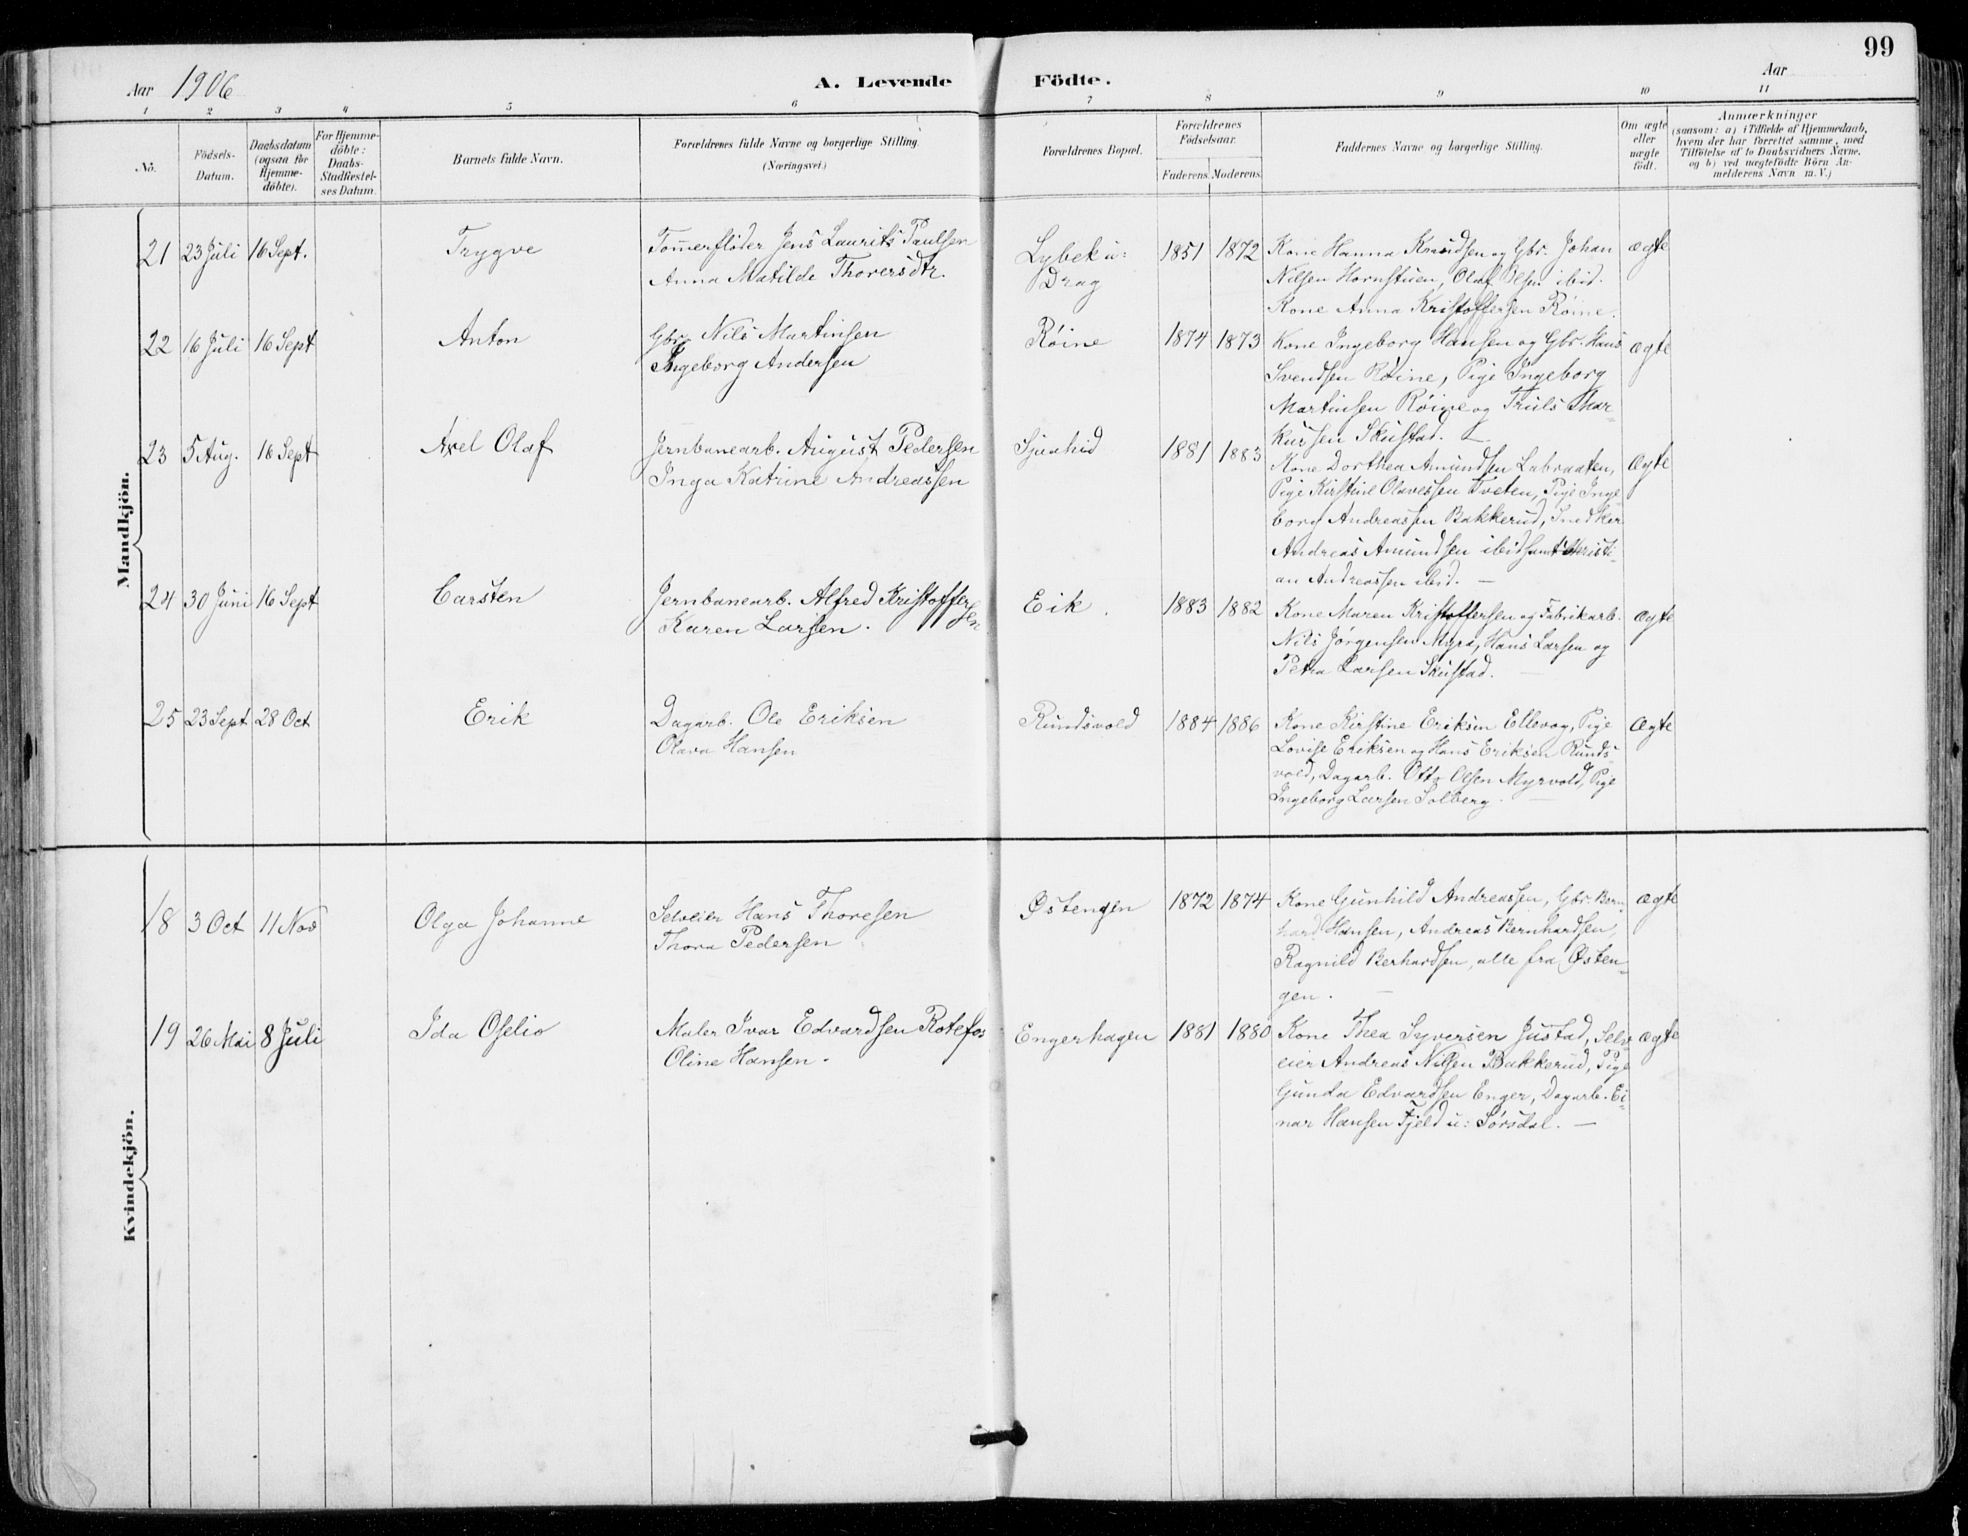 99
Aar 1906
A. Levende Födte.
Aar
1 2 3 4 5 6 7 8 9 10 11
No.
Födsels-
Datum.
Daabsdatum
(ogsaa for
Hjemme-
döbte).
For Hjemme-
döbte:
Daabs-
Stadfæstel-
ses Datum.
Barnets fulde Navn.
Forældrenes fulde Navne og borgerlige Stilling.
(Næringsvei)
Forældrenes Bopæl.
Forældrenes
Födselsaar.
Faderens. Moderens.
Faddernes Navne og borgerlige Stilling.
Om ægte
eller
uægte
födt.
Anmærkninger
(saasom: a) i Tilfælde af Hjemmedaab,
hvem der har forrettet samme, med
Tilföielse af to Daabsvidners Navne.
og b) ved uægtefödte Börn An-
melderens Navn m. V.)
Mandkjön.
21 23 Juli 16 Sept. Trygve
Tømerfløder Jens Laurits Paulsen
Anna Matilde Thorersdtr.
Lybek u:
Drag
1851 1872
Kone Hanna Knudsen og Gbr. Johan
Nilsen Hornstuen, Olaf Olsen ibid.
Kone Anna Kristoffersen Röine.
ægte
22 16 Juli 16 Sept Anton
Gbr. Nils Martinsen
Ingeborg Andersen
Röine
1874 1873
Kone Ingeborg Hansen og Gbr. Hans
Svendsen Röine, Pige Ingeborg
Martinsen Röine og Truls Mar-
kussen Skustad.
ægte
23 5 Aug. 16 Sept Axel Olaf
Jernbanearb. August Pedersen
Inga Katrine Andreassen
1881 1883
Kone Dorthea Amundsen Labraaten,
Pige Kirstine Olavessen Tveten, Pige Inge
borg Andreassen Bakkerud, Snedker
Andreas Amundsen ibid samt Kristi-
an Andreassen ibid. —
Ægte
24 30 Juni 16 Sept Carsten
Jernbanearb. Alfred Kristoffer
sen
Karen Larsen.
Eik.
1883 1882
Kone Maren Kristoffersen og Fabrikarb.
Nils Jörgensen Myra, Hans Larsen og
Petra Larsen Skustad.
ægte
25 23 Sept 28 Oct Erik
Dagarb. Ole Eriksen
Olava Hansen
Rundsvold
1884 1886
Kone Kirstine Eriksen Ellevog, Pige
Lovise Eriksen og Hans Eriksen Runds-
vold, Dagarb. Otto Olsen Myrvold, Pige
Ingeborg Larsen Solberg. —
Ægte
Kvindekjön.
18 3 Oct 11 Nov Olga Johanne
Selveier Hans Thoresen
Thora Pedersen
Østengen
1872 1874
Kone Gunhild Andreassen, Gbr. Bern-
hard Hansen, Andreas Bernhardsen,
Ragnild Berhardsen, alle fra Østen-
gen. —
ægte
19 26 Mai 8 Juli Ida Oselio
Maler Ivar Edvardsen Rotefos
Oline Hansen.
Engerhagen
1881 1880
Kone Thea Syversen Justad, Selv-
eier Andreas Nilsen Bakkerud, Pige
Gunda Edvardsen Enger, Dagarb. Ei-
nar Hansen Fjeld u: Sörsdal. —
ægte